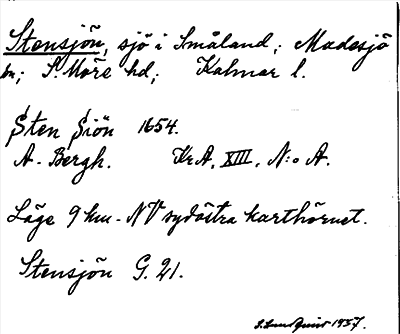 Stensjön, sjö i Småland; Madesjö
sn; S Möre hd; Kalmar l.
Sten Siön 1654.
A. Bergh. Kr.A. XIII. N:o A.
Läge 9 km. NV sydöstra karthörnet.
Stensjön G. 21.
S. Lindquist 1937.